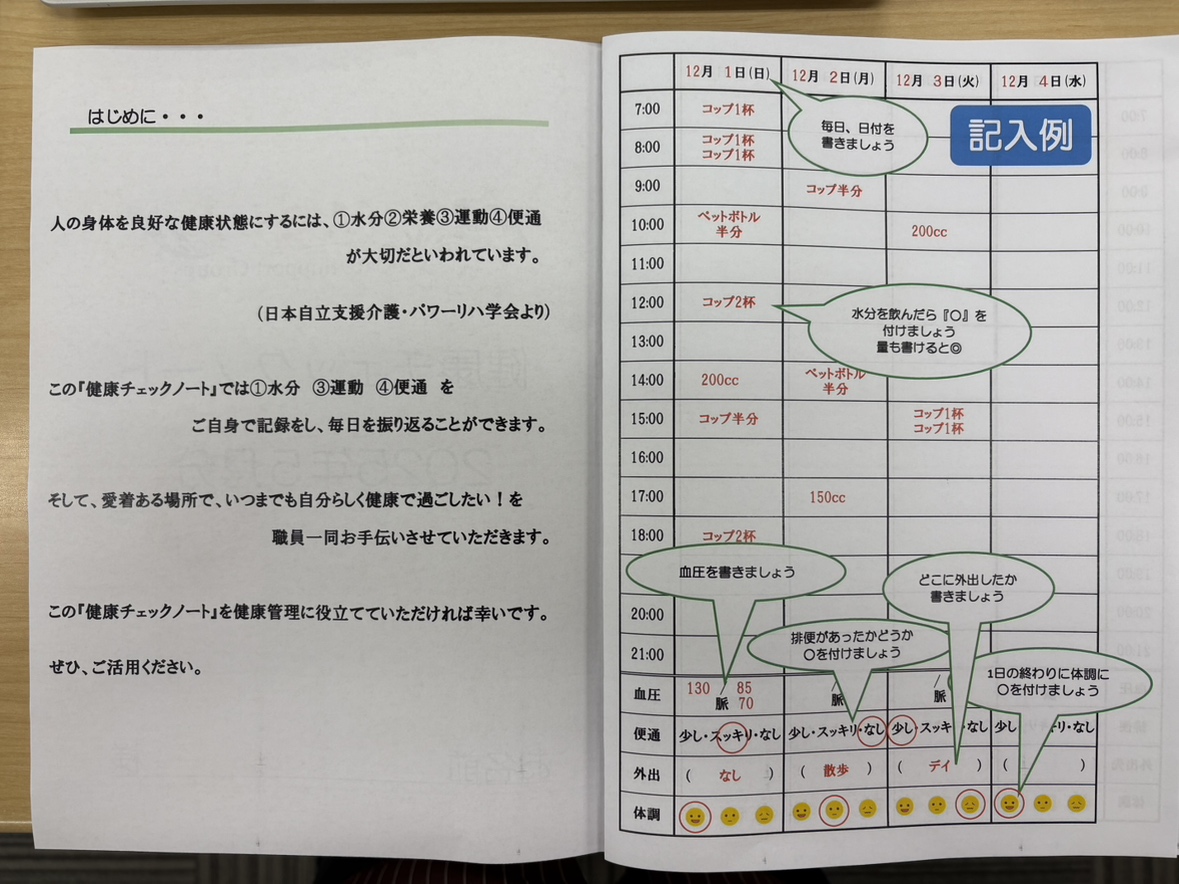 はじめに・・・
人の身体を良好な健康状態にするには、①水分②栄養③運動④便通
が大切だといわれています。
(日本自立支援介護・パワーリハ学会より)
この『健康チェックノート』では①水分　③運動　④便通　を
ご自身で記録をし、毎日を振り返ることができます。
そして、愛着ある場所で、いつまでも自分らしく健康で過ごしたい！を
職員一同お手伝いさせていただきます。
この『健康チェックノート』を健康管理に役立てていただければ幸いです。
ぜひ、ご活用ください。
12月 1日(日) 12月 2日(月) 12月 3日(火) 12月 4日(水)
記入例
毎日、日付を
書きましょう
7:00 コップ1杯
8:00 コップ1杯
コップ1杯
9:00 コップ半分
10:00 ペットボトル
半分 200cc
11:00
12:00 コップ2杯
水分を飲んだら『〇』を
付けましょう
量も書けると◎
13:00
14:00 200cc ペットボトル
半分
15:00 コップ半分 コップ1杯
コップ1杯
16:00
17:00 150cc
18:00 コップ2杯
血圧を書きましょう
どこに外出したか
書きましょう
20:00
排便があったかどうか
〇を付けましょう
21:00
1日の終わりに体調に
〇を付けましょう
血圧 130 / 85 / /
脈 70 脈 脈
便通 少し・スッキリ・なし 少し・スッキリ・なし 少し・スッキ ・なし 少し キリ・なし
外出 ( なし ) ( 散歩 ) ( デイ ) ( )
体調